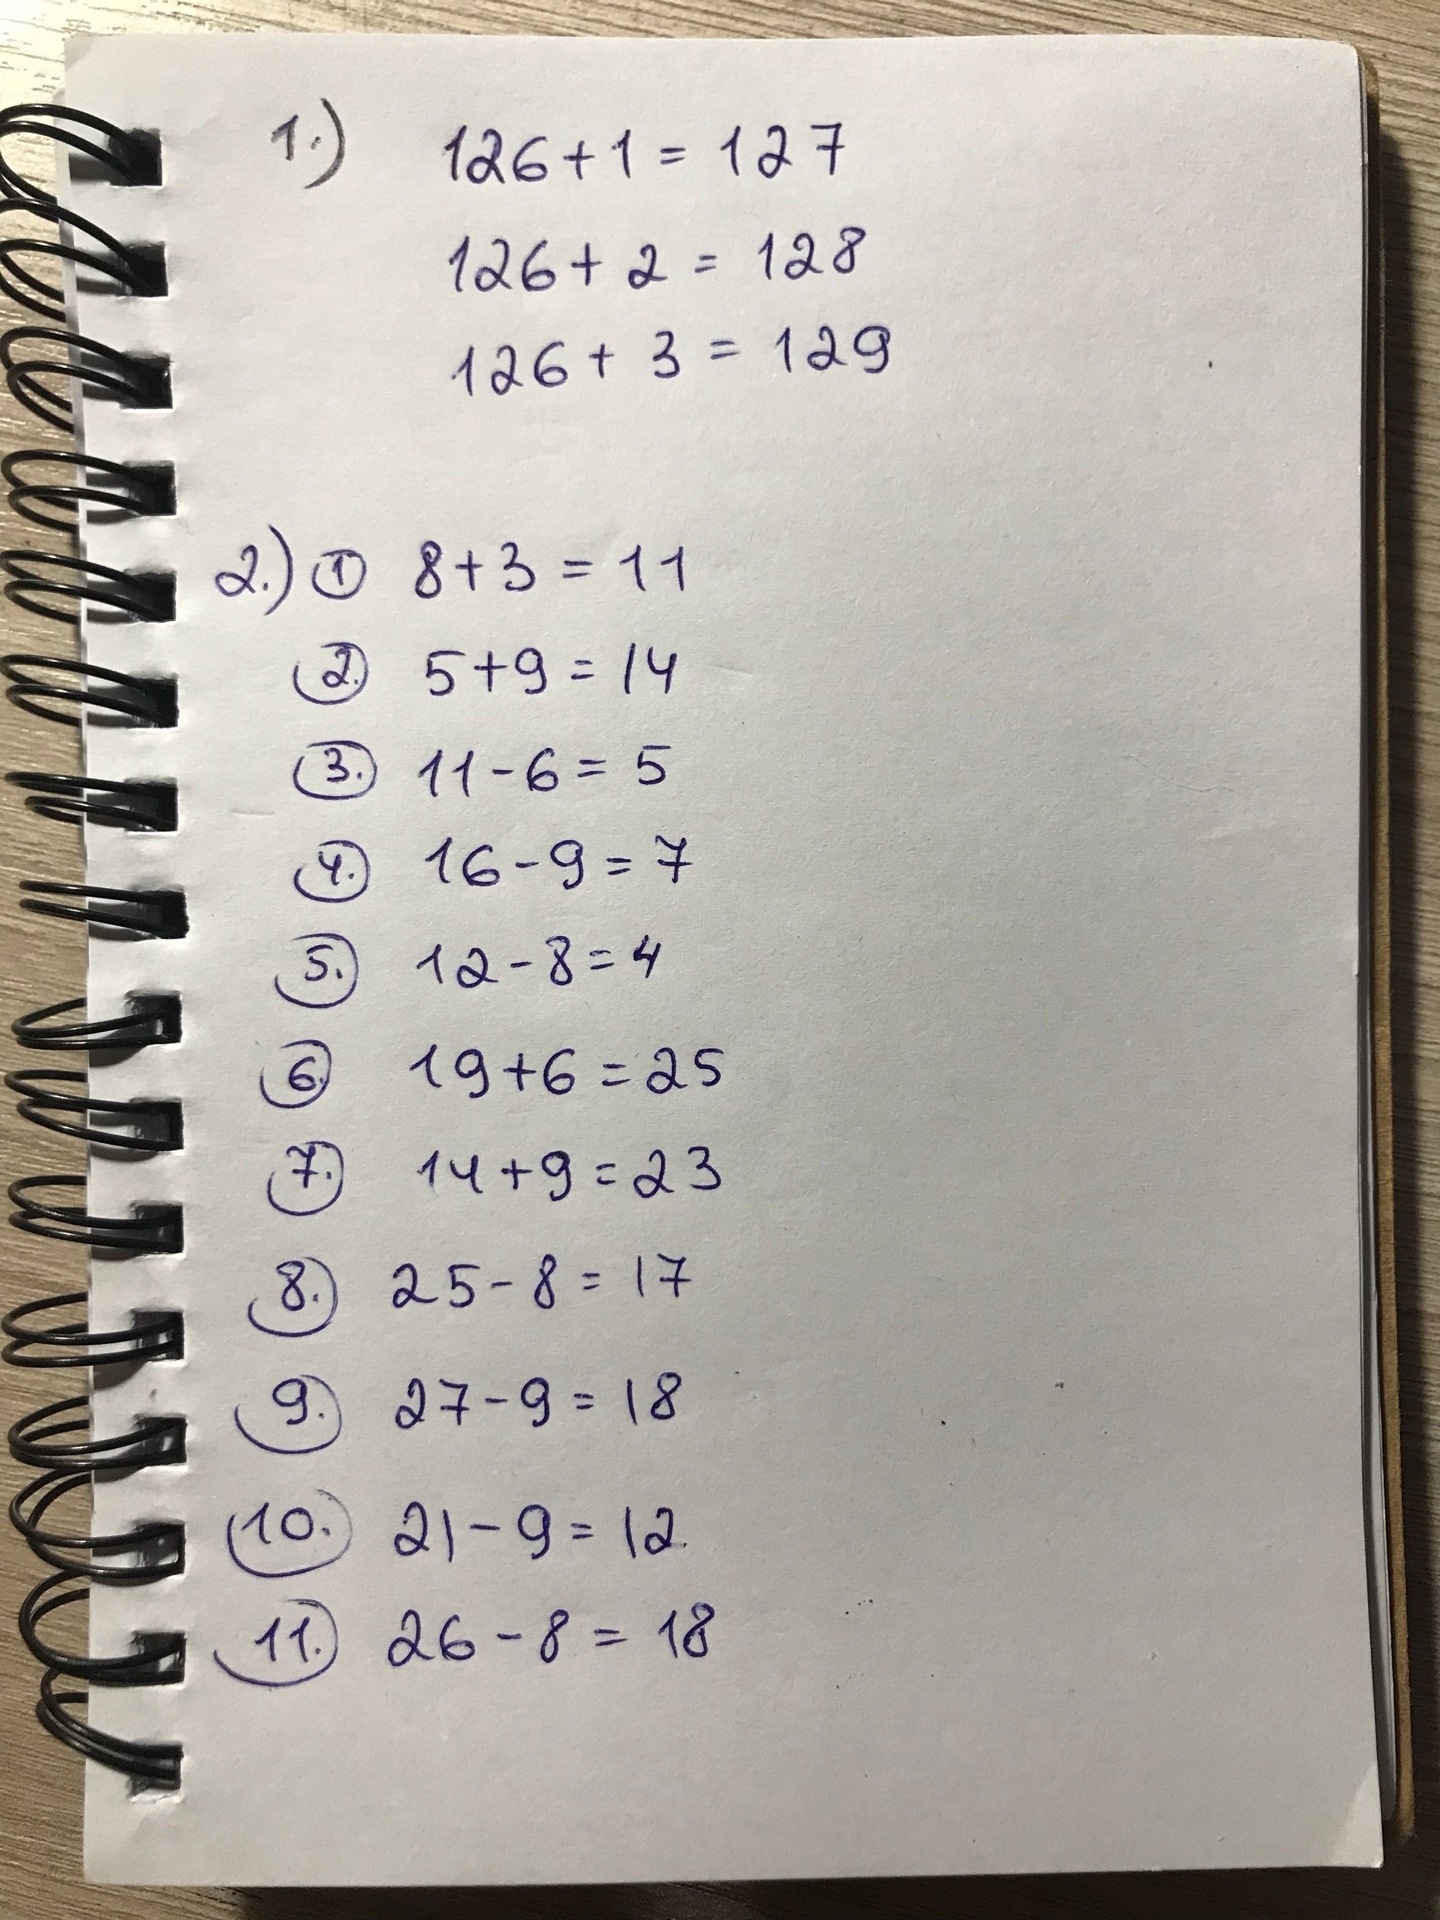 1.) 126+1=127
126+2=128
126+3=129
2.) ① 8+3=11
2. 5+9=14
3. 11-6=5
4. 16-9=7
5. 12-8=4
6. 19+6=25
7. 14+9=23
8. 25-8=17
9. 27-9=18
10. 21-9=12
11. 26-8=18